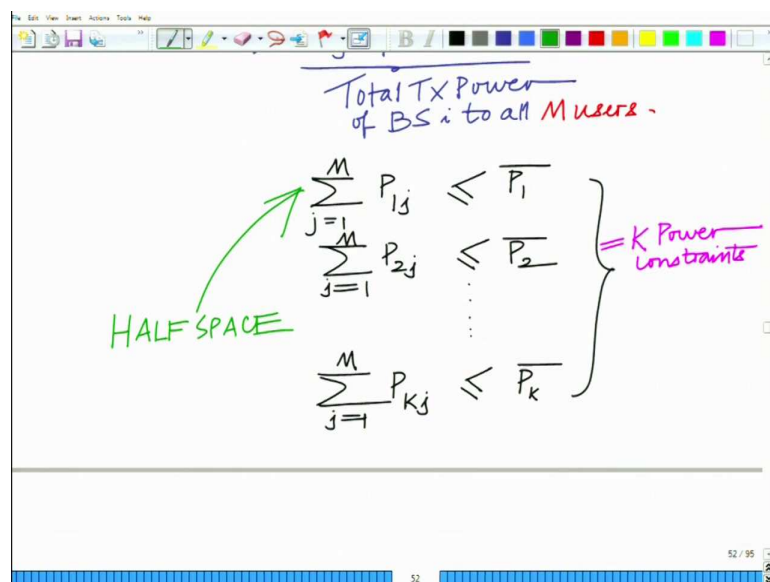 File Edit View Insert Actions Tools Help
B I
Total Tx Power
of BS i to all M users.
M
∑ P1j ≤ P̅1
j=1
M
∑ P2j ≤ P̅2
j=1
= K Power
constraints
HALFSPACE
M
∑ PKj ≤ P̅K
j=1
52 / 95
52